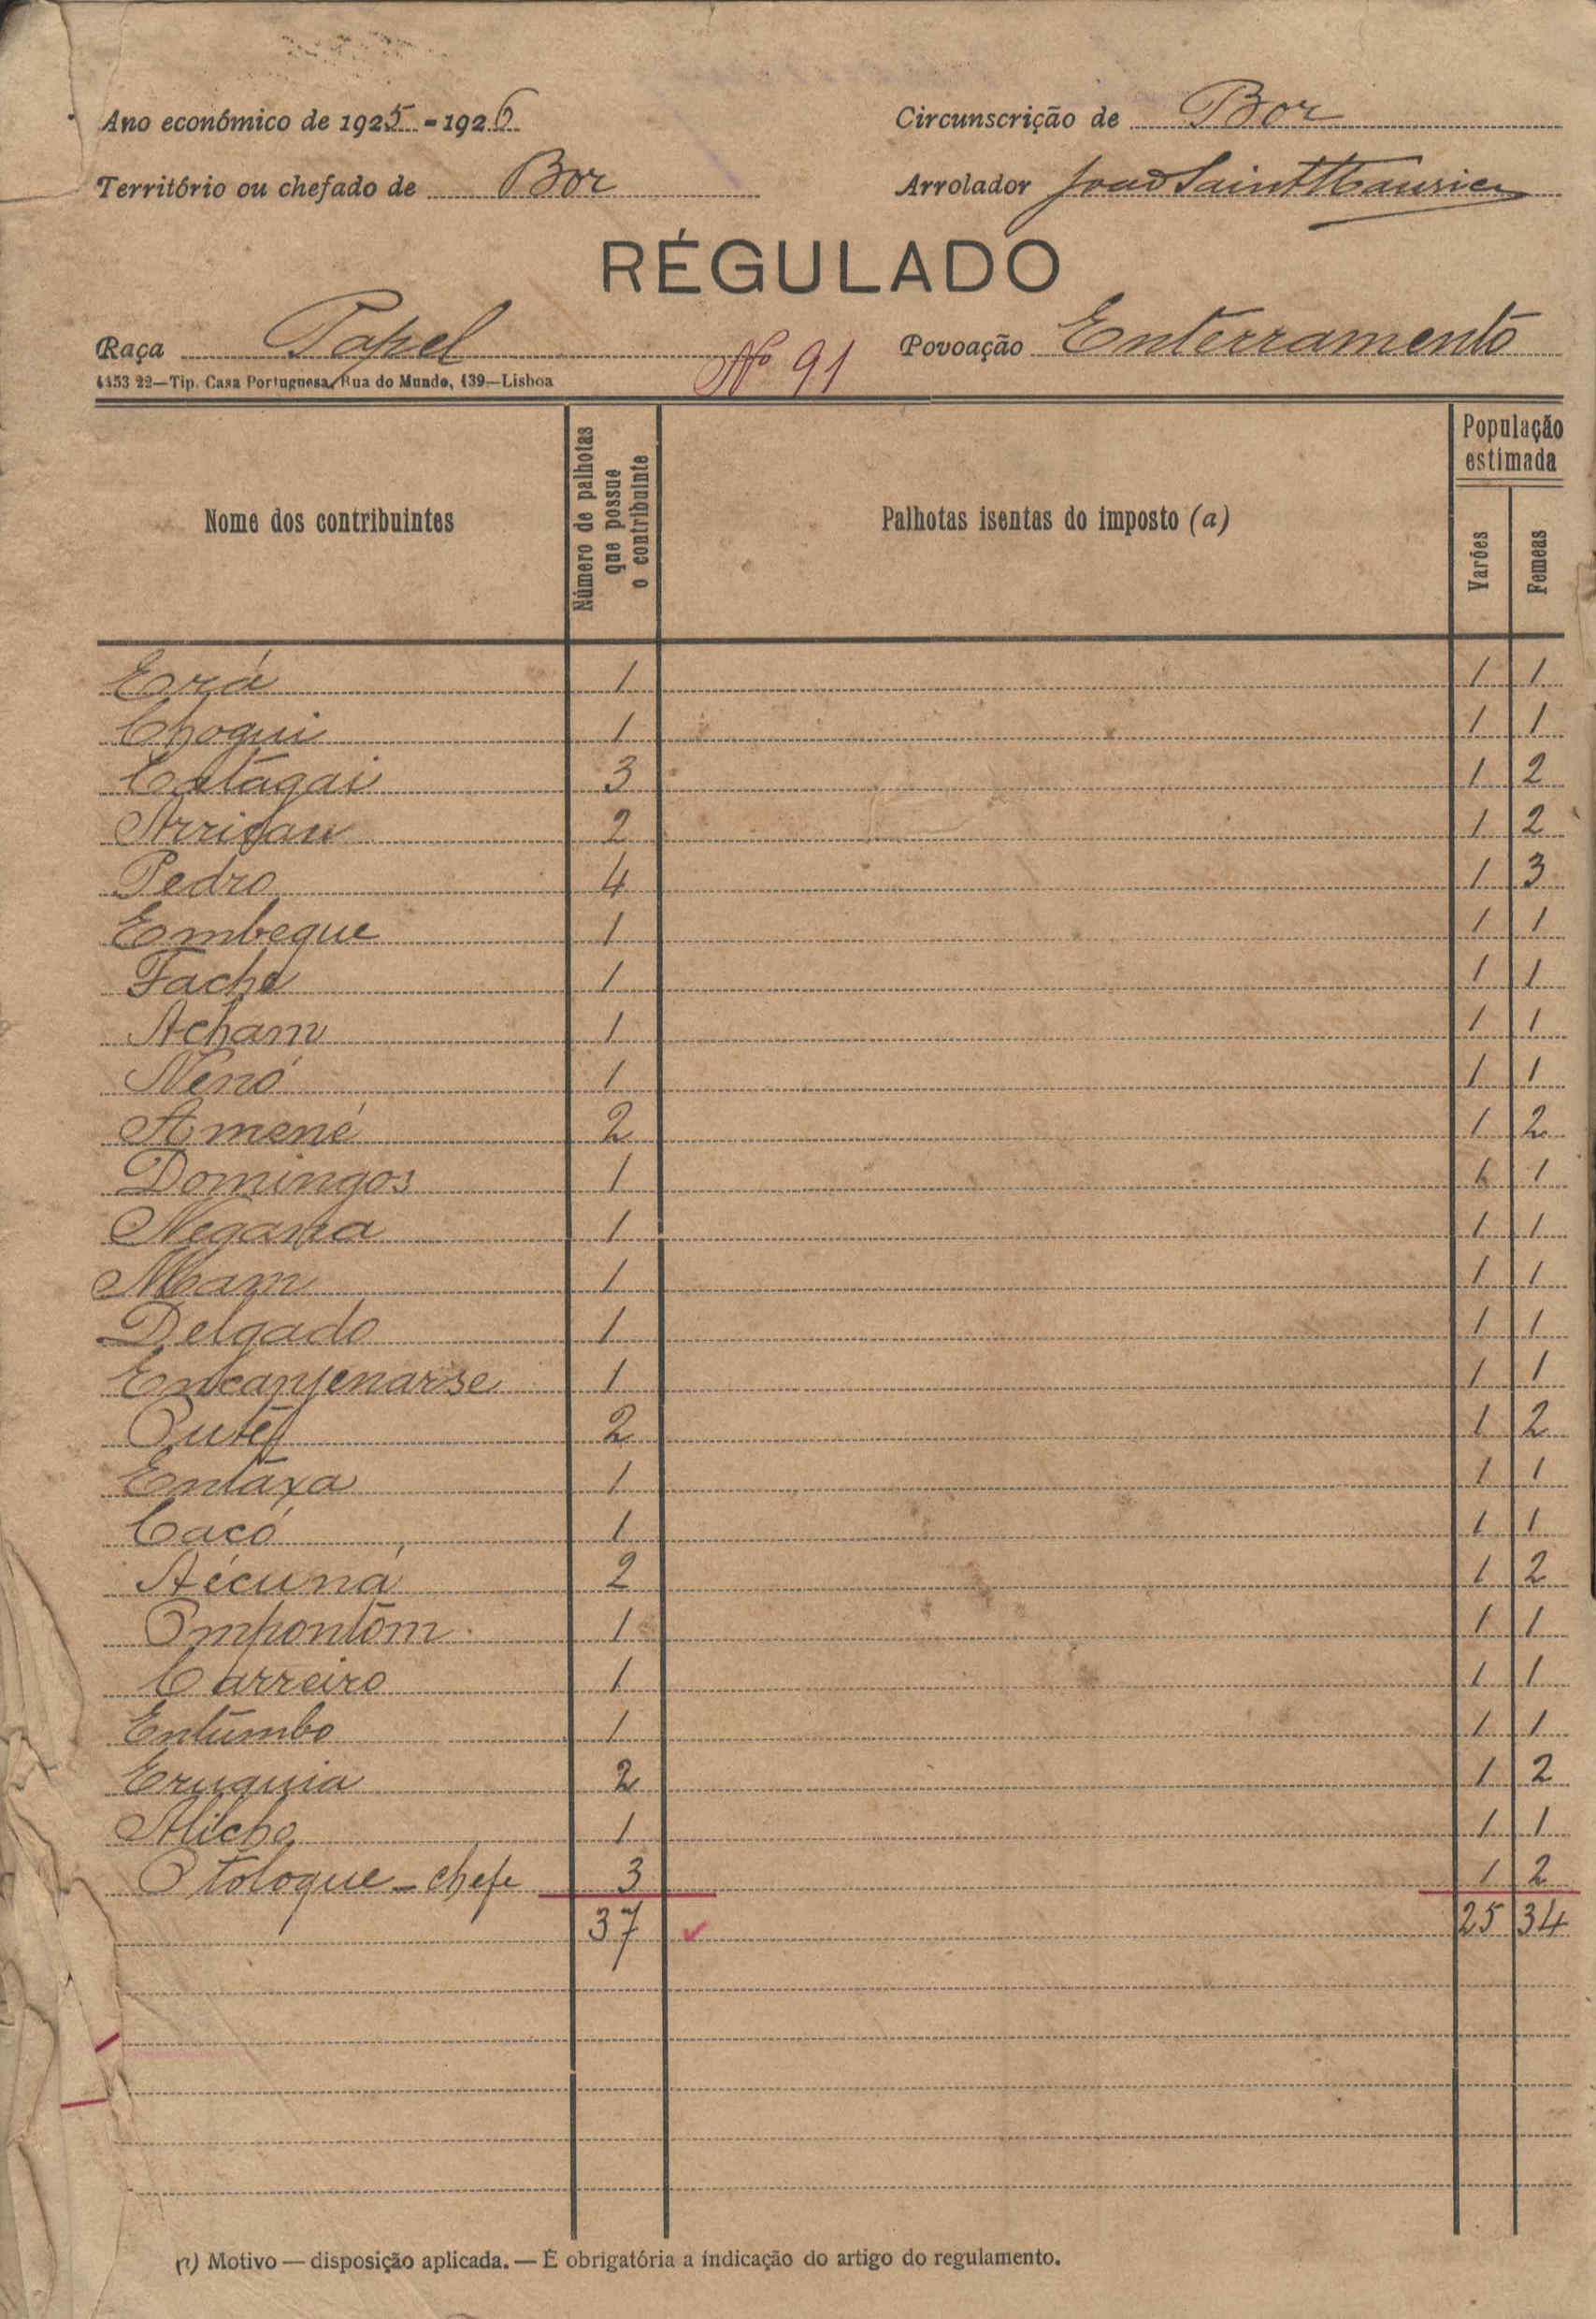 Ano económico de 1925-1926
Circunscrição de Bor
Território ou chefado de Bor
Arrolador João Saint Maurice
RÉGULADO
Raça Papel
Nº 91
Povoação Enterramento
4453 22—Tip. Casa Portuguesa, Rua do Mundo, 139—Lisboa
Nome dos contribuintes
Número de palhotas que possue o contribuinte
Palhotas isentas do imposto (a)
População estimada
Varões
Femeas
Erá 1 1 1
Choqui 1 1 1
Catágai 3 1 2
2 1 2
Pedro 4 1 3
Embeque 1 1 1
Fache 1 1 1
Acham 1 1 1
Nenó 1 1 1
Amené 2 1 2
Domingos 1 1 1
1 1 1
Mam 1 1 1
Delgado 1 1 1
1 1 1
2 1 2
Entáxa 1 1 1
Cacó 1 1 1
2 1 2
Ompontôm 1 1 1
Carreiro 1 1 1
Entumbo 1 1 1
Eruquia 2 1 2
1 1 1
Otoloque - chefe 3 1 2
37 25 34
(a) Motivo — disposição aplicada. — É obrigatória a indicação do artigo do regulamento.